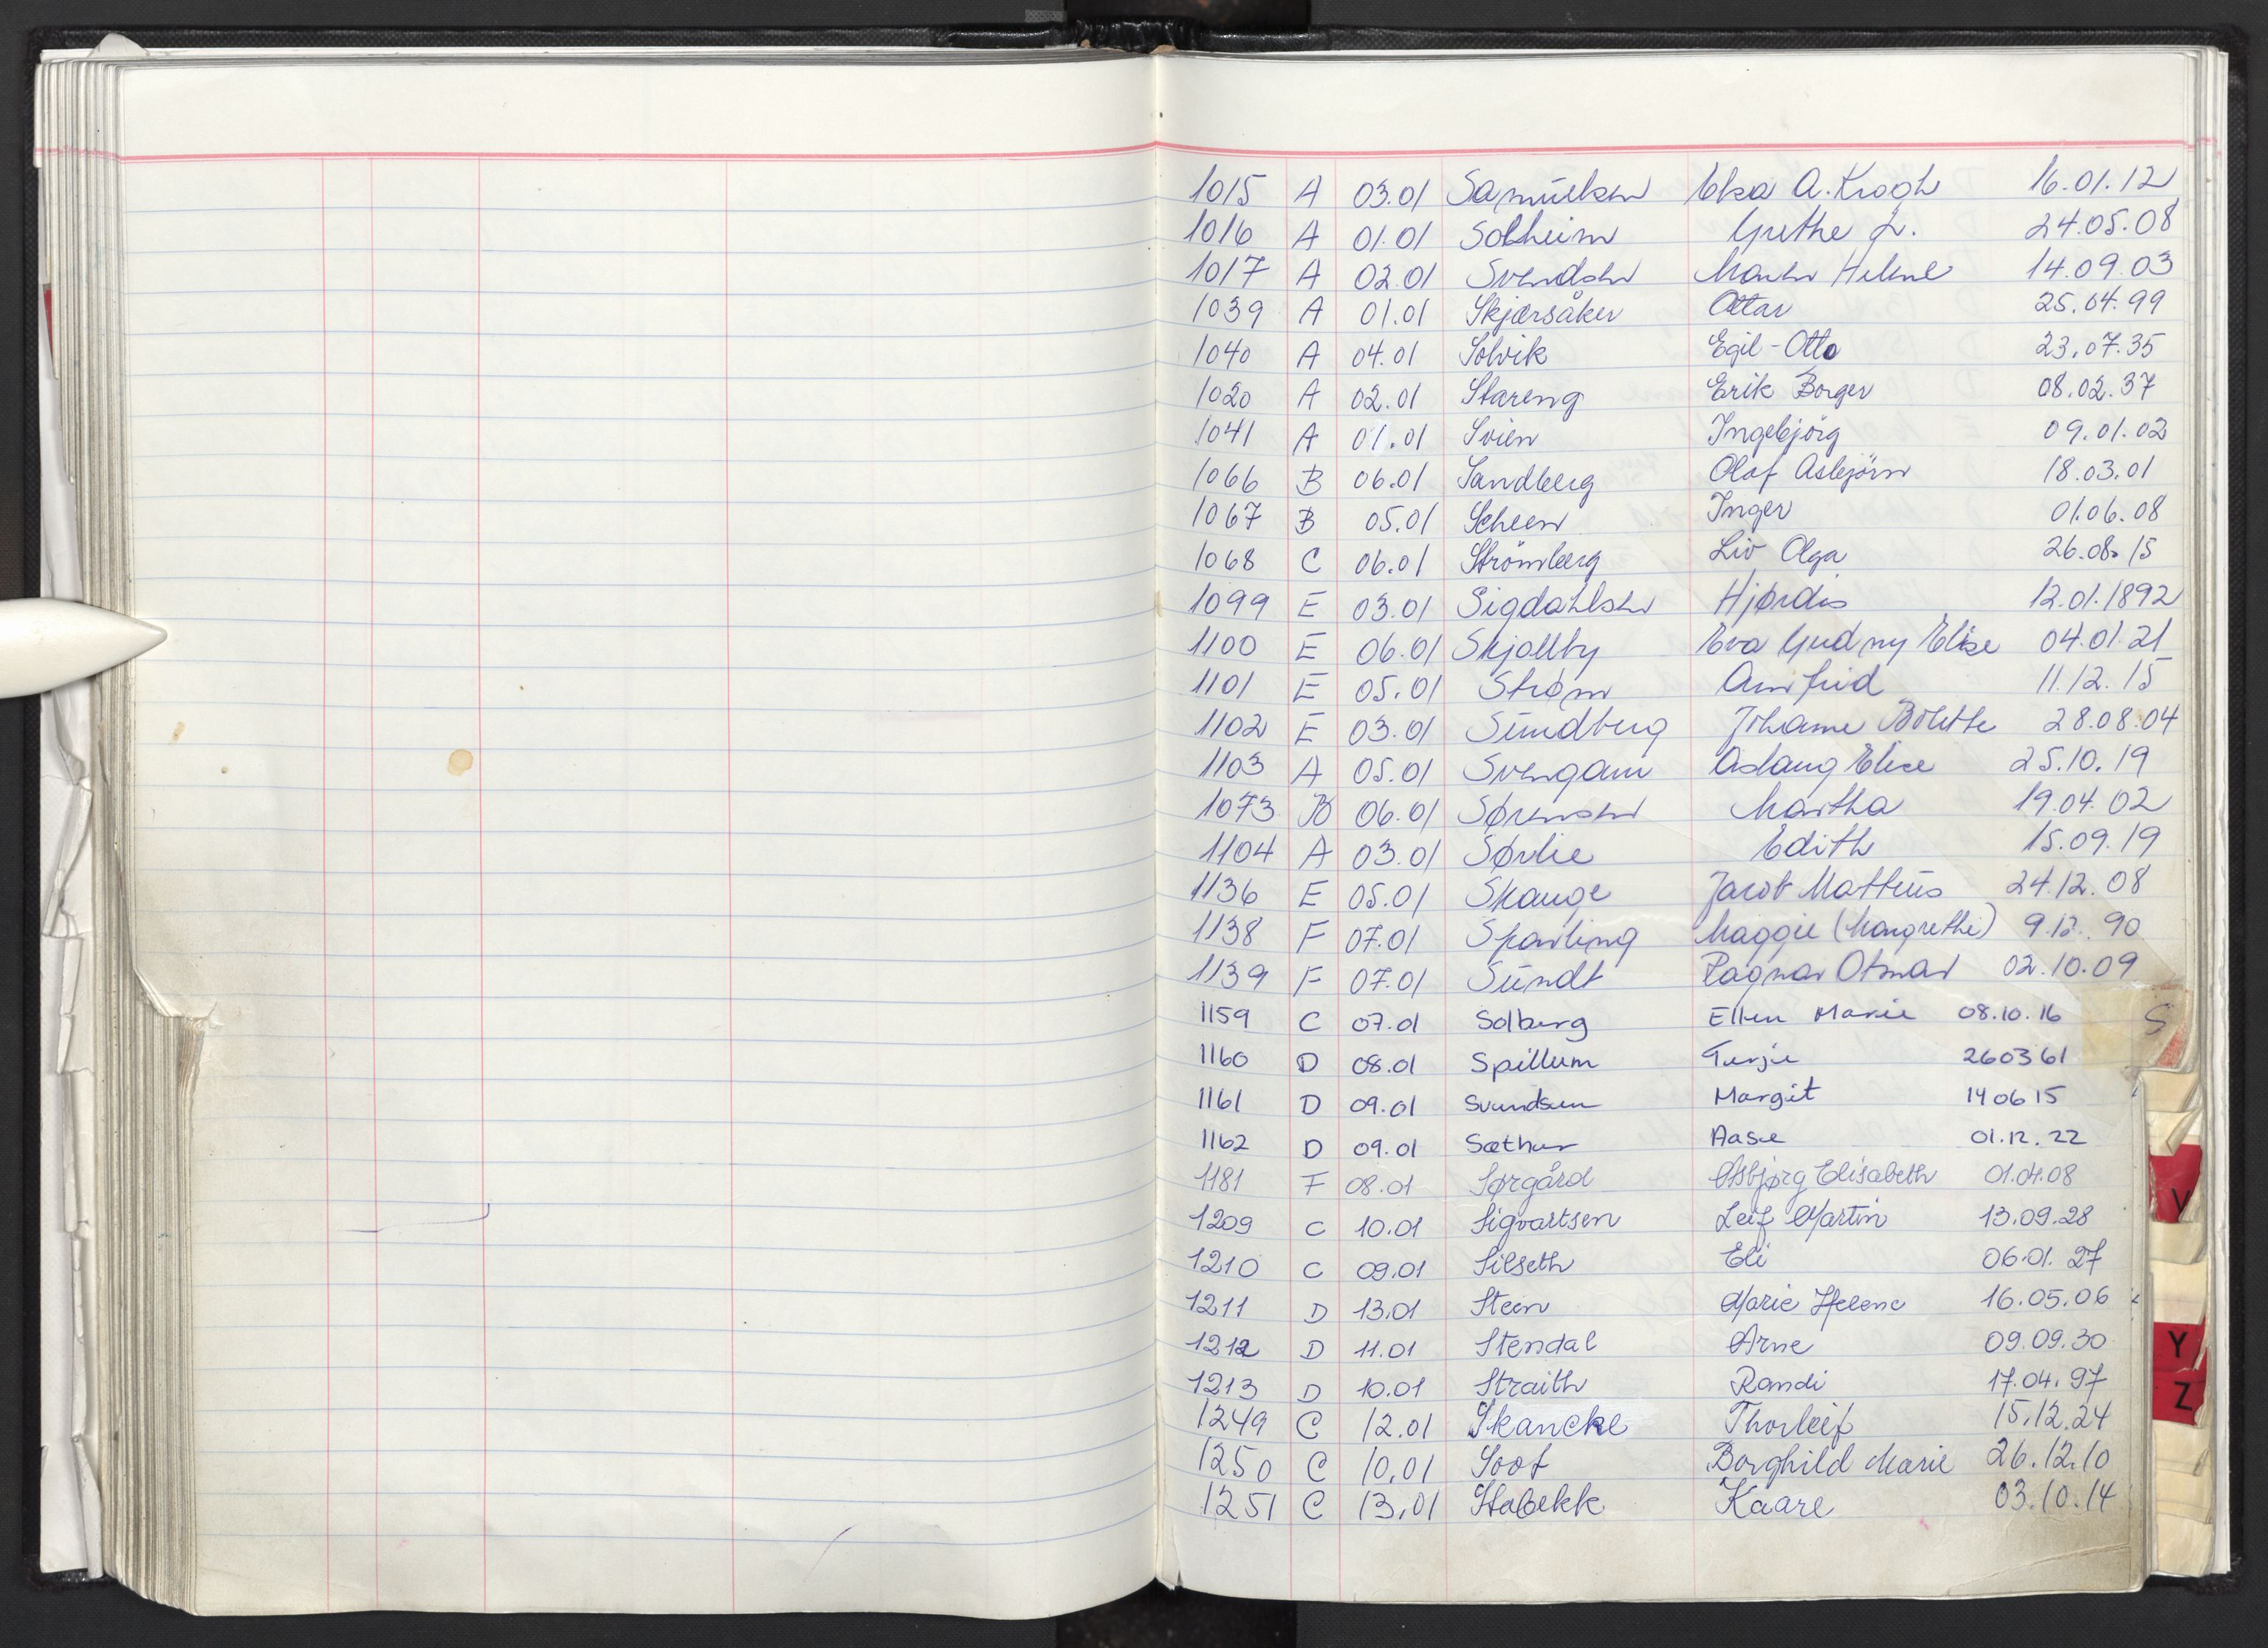 1015 A 03.01 Samuelsen Elsa A. Krogh 16.01.12
1016 A 01.01 Solheim Grethe L. 24.05.08
1017 A 02.01 Svendsen Maren Helene 14.09.03
1039 A 01.01 Skjærsåker Ottar 25.04.99
1040 A 04.01 Solvik Egil-Otto 23.07.35
1020 A 02.01 Stareng Erik Borger 08.02.37
1041 A 01.01 Svien Ingebjörg 09.01.02
1066 B 06.01 Sandberg Olaf Asbjörn 18.03.01
1067 B 05.01 Scheen Inger 01.06.08
1068 C 06.01 Strömberg Liv Olga 26.08.15
1099 E 03.01 Sigdahlsen Hjørdis 12.01.1892
1100 E 06.01 Skjollby Eva Gudny Elise 04.01.21
1101 E 05.01 Strøm Arnfrid 11.12.15
1102 E 03.01 Sundberg Johanne 28.08.04
1103 A 05.01 Svengam Aslaug Elise 25.10.19
1073 B 06.01 Sørensen Martha 19.04.02
1104 A 03.01 Sørlie Edith 15.09.19
1136 E 05.01 Skauge Jacob Matteus 24.12.08
1138 F 07.01 Sparling Maggie (Margrethe) 9.12.90
1139 F 07.01 Sundt Ragnar Otmar 02.10.09
1159 C 07.01 Solberg Ellen Marie 08.10.16
S
1160 D 08.01 Spillum Terje 260361
1161 D 09.01 Svendsen Margit 140615
1162 D 09.01 Sæther Aase 01.12.22
1181 F 08.01 Sørgård Asbjørg Elisabeth 01.04.08
V
1209 C 10.01 Sigvartsen Leif Martin 13.09.28
1210 C 09.01 Silseth Eli 06.01.27
1211 D 13.01 Stein Marie Helene 16.05.06
1212 D 11.01 Stendal Arne 09.09.30
Y
1213 D 10.01 Straith Randi 17.04.97
Z
1249 C 12.01 Skancke Thorleif 15.12.24
1250 C 10,01 Soot Borghild Marie 26.12.10
1251 C 13,01 Stabekk Kaare 03.10.14